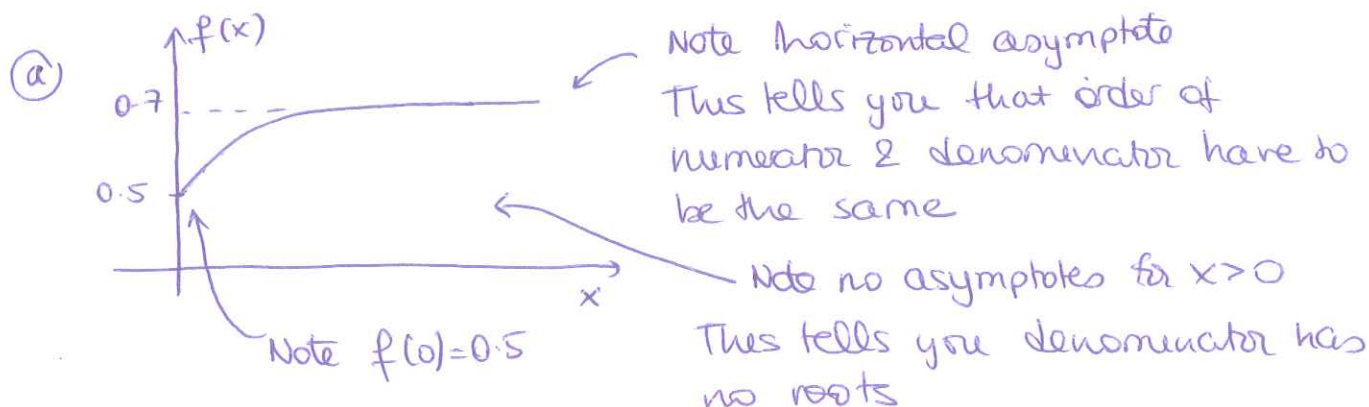 (a)
f(x)
0.7
0.5
x
Note f(0)=0.5
Note horizontal asymptote
This tells you that order of
numerator & denominator have to
be the same
Note no asymptotes for x>0
This tells you denominator has
no roots